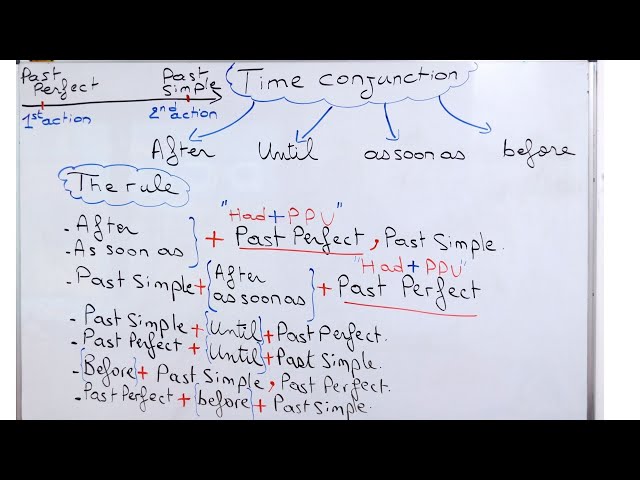 Past Perfect
Past Simple
1st action
2nd action
Time conjunction
After Until as soon as before
The rule
"Had + PPV"
- After
- As soon as } + Past Perfect, Past Simple.
"Had + PPV"
- Past Simple + { After as soon as } + Past Perfect
- Past Simple + {Until} + Past Perfect.
- Past Perfect + {Until} + Past Simple.
- {Before} + Past Simple, Past Perfect.
- Past Perfect + {before} + Past Simple.